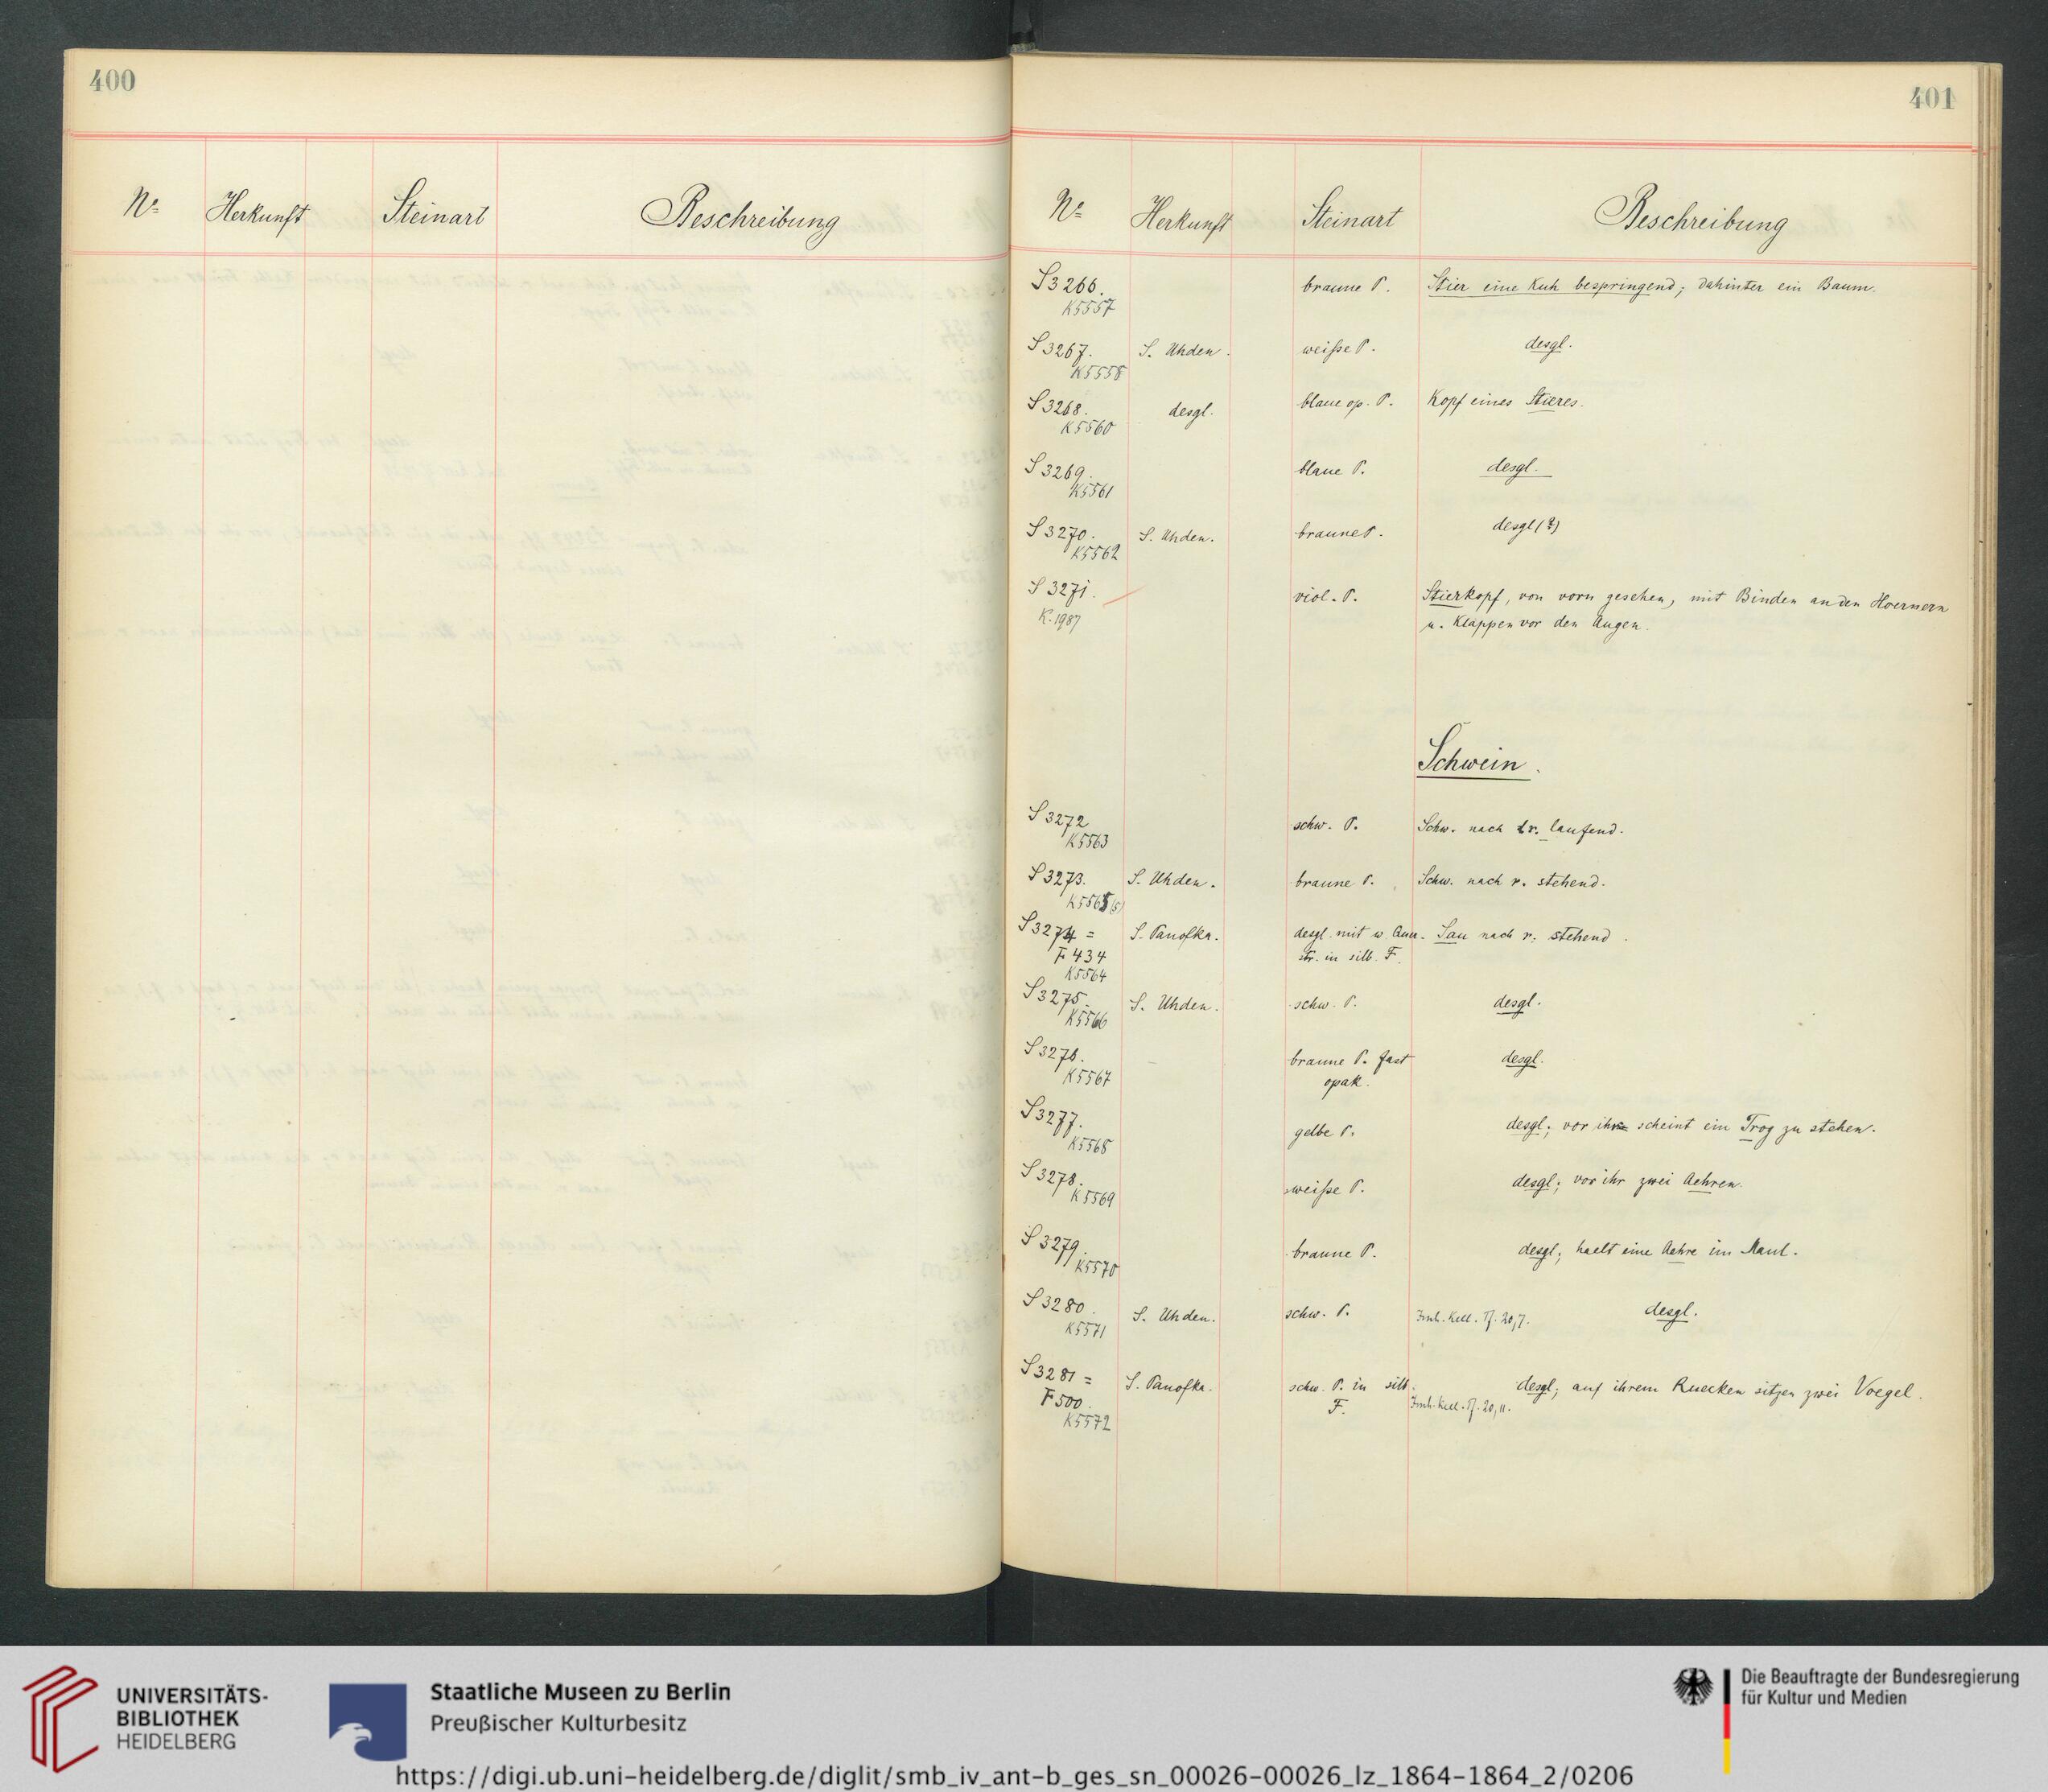 400
Nº Herkunft Steinart Beschreibung
401
Nº Herkunft Steinart Beschreibung
S3266. braune P. Stier eine Kuh bespringend; dahinter ein Baum.
K5557
S3267. S. Uhden. weiße P. desgl.
K5558
S3268. desgl. blaue op. P. Kopf eines Stieres.
K5560
S3269. blaue P. desgl.
K5561
S3270. S. Uhden. braune P. desgl (?)
K5562
S3271. viol. P. Stierkopf, von vorn gesehen, mit Binden an den Hoernern
K.1987 u. Klappen vor den Augen.
Schwein.
S3272 schw. P. Schw. nach r. laufend.
K5563
S3273. S. Uhden. braune P. Schw. nach r. stehend.
K5565 (5)
S3274 = S. Panofka. desgl. mit w. Quer- Sau nach r. stehend.
F434 str. in silb. F.
K5564
S3275. S. Uhden. schw. P. desgl.
K5566
S3276. braune P. fast desgl.
K5567 opak.
S3277. gelbe P. desgl; vor ihr scheint ein Trog zu stehen.
K5568
S3278. weiße P. desgl; vor ihr zwei Aehren.
K5569
S3279. braune P. desgl; haelt eine Aehre im Maul.
K5570
S3280. S. Uhden. schw. P. Imh. Kell. Tf. 20,7. desgl.
K5571
S3281 = S. Panofka. schw. P. in silb. desgl; auf ihrem Ruecken sitzen zwei Voegel.
F500. F. Imh. Kell. Tf. 20,11.
K5572
UNIVERSITÄTS-
BIBLIOTHEK
HEIDELBERG
Staatliche Museen zu Berlin
Preußischer Kulturbesitz
Die Beauftragte der Bundesregierung
für Kultur und Medien
https://digi.ub.uni-heidelberg.de/diglit/smb_iv_ant-b_ges_sn_00026-00026_lz_1864-1864_2/0206